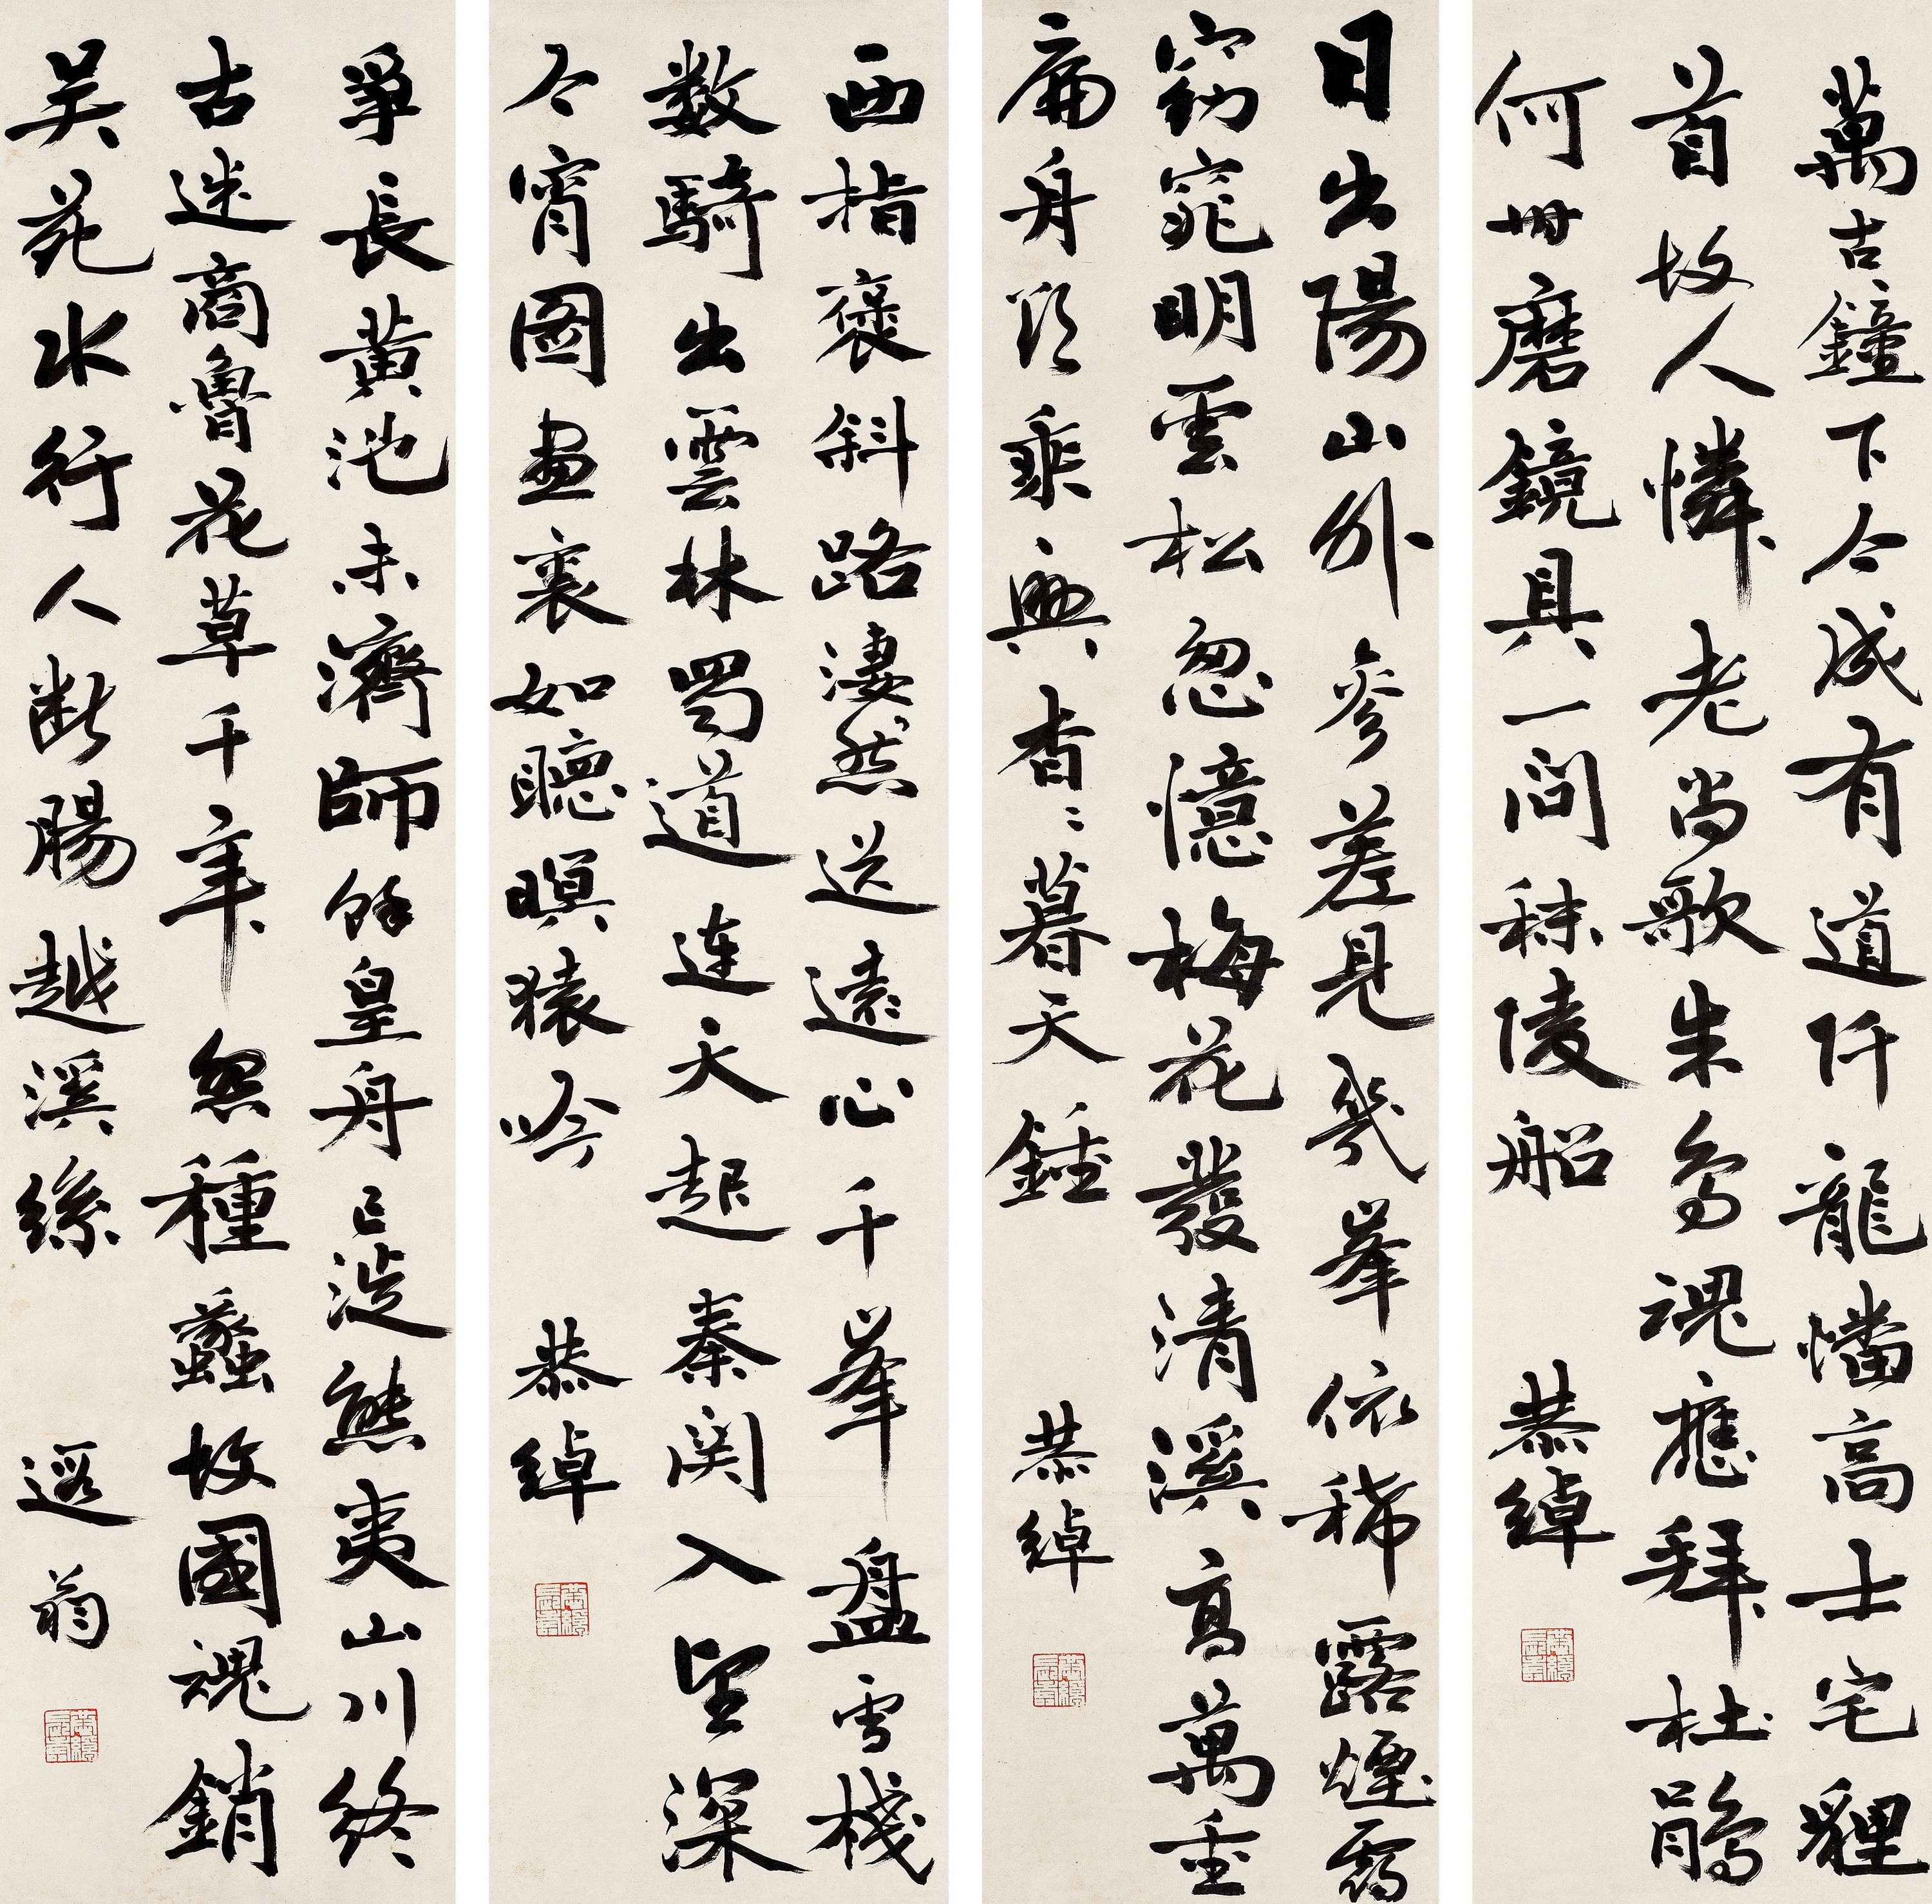 萬古鐘下今成有道阡龍幡高士宅貍
首故人憐老尚歌朱鳥魂應拜杜鵑
何世磨鏡具一問秣陵船
恭綽
日出陽山外參差見幾峯依稀露煙靄
窈窕明雲松忽憶梅花發清溪高萬重
扁舟欲乘興杳杳暮天鍾
恭綽
西指褒斜路淒然送遠心千峯盤雪棧
数騎出雲林蜀道連天起秦関入望深
今宵圖畫裏如聽暝猿吟
恭綽
爭長黃池未濟師餘皇舟已涉熊夷山川終
古迷商魯花草千年怨種蠡故國魂銷
吴苑水行人断腸越溪絲
遐翁